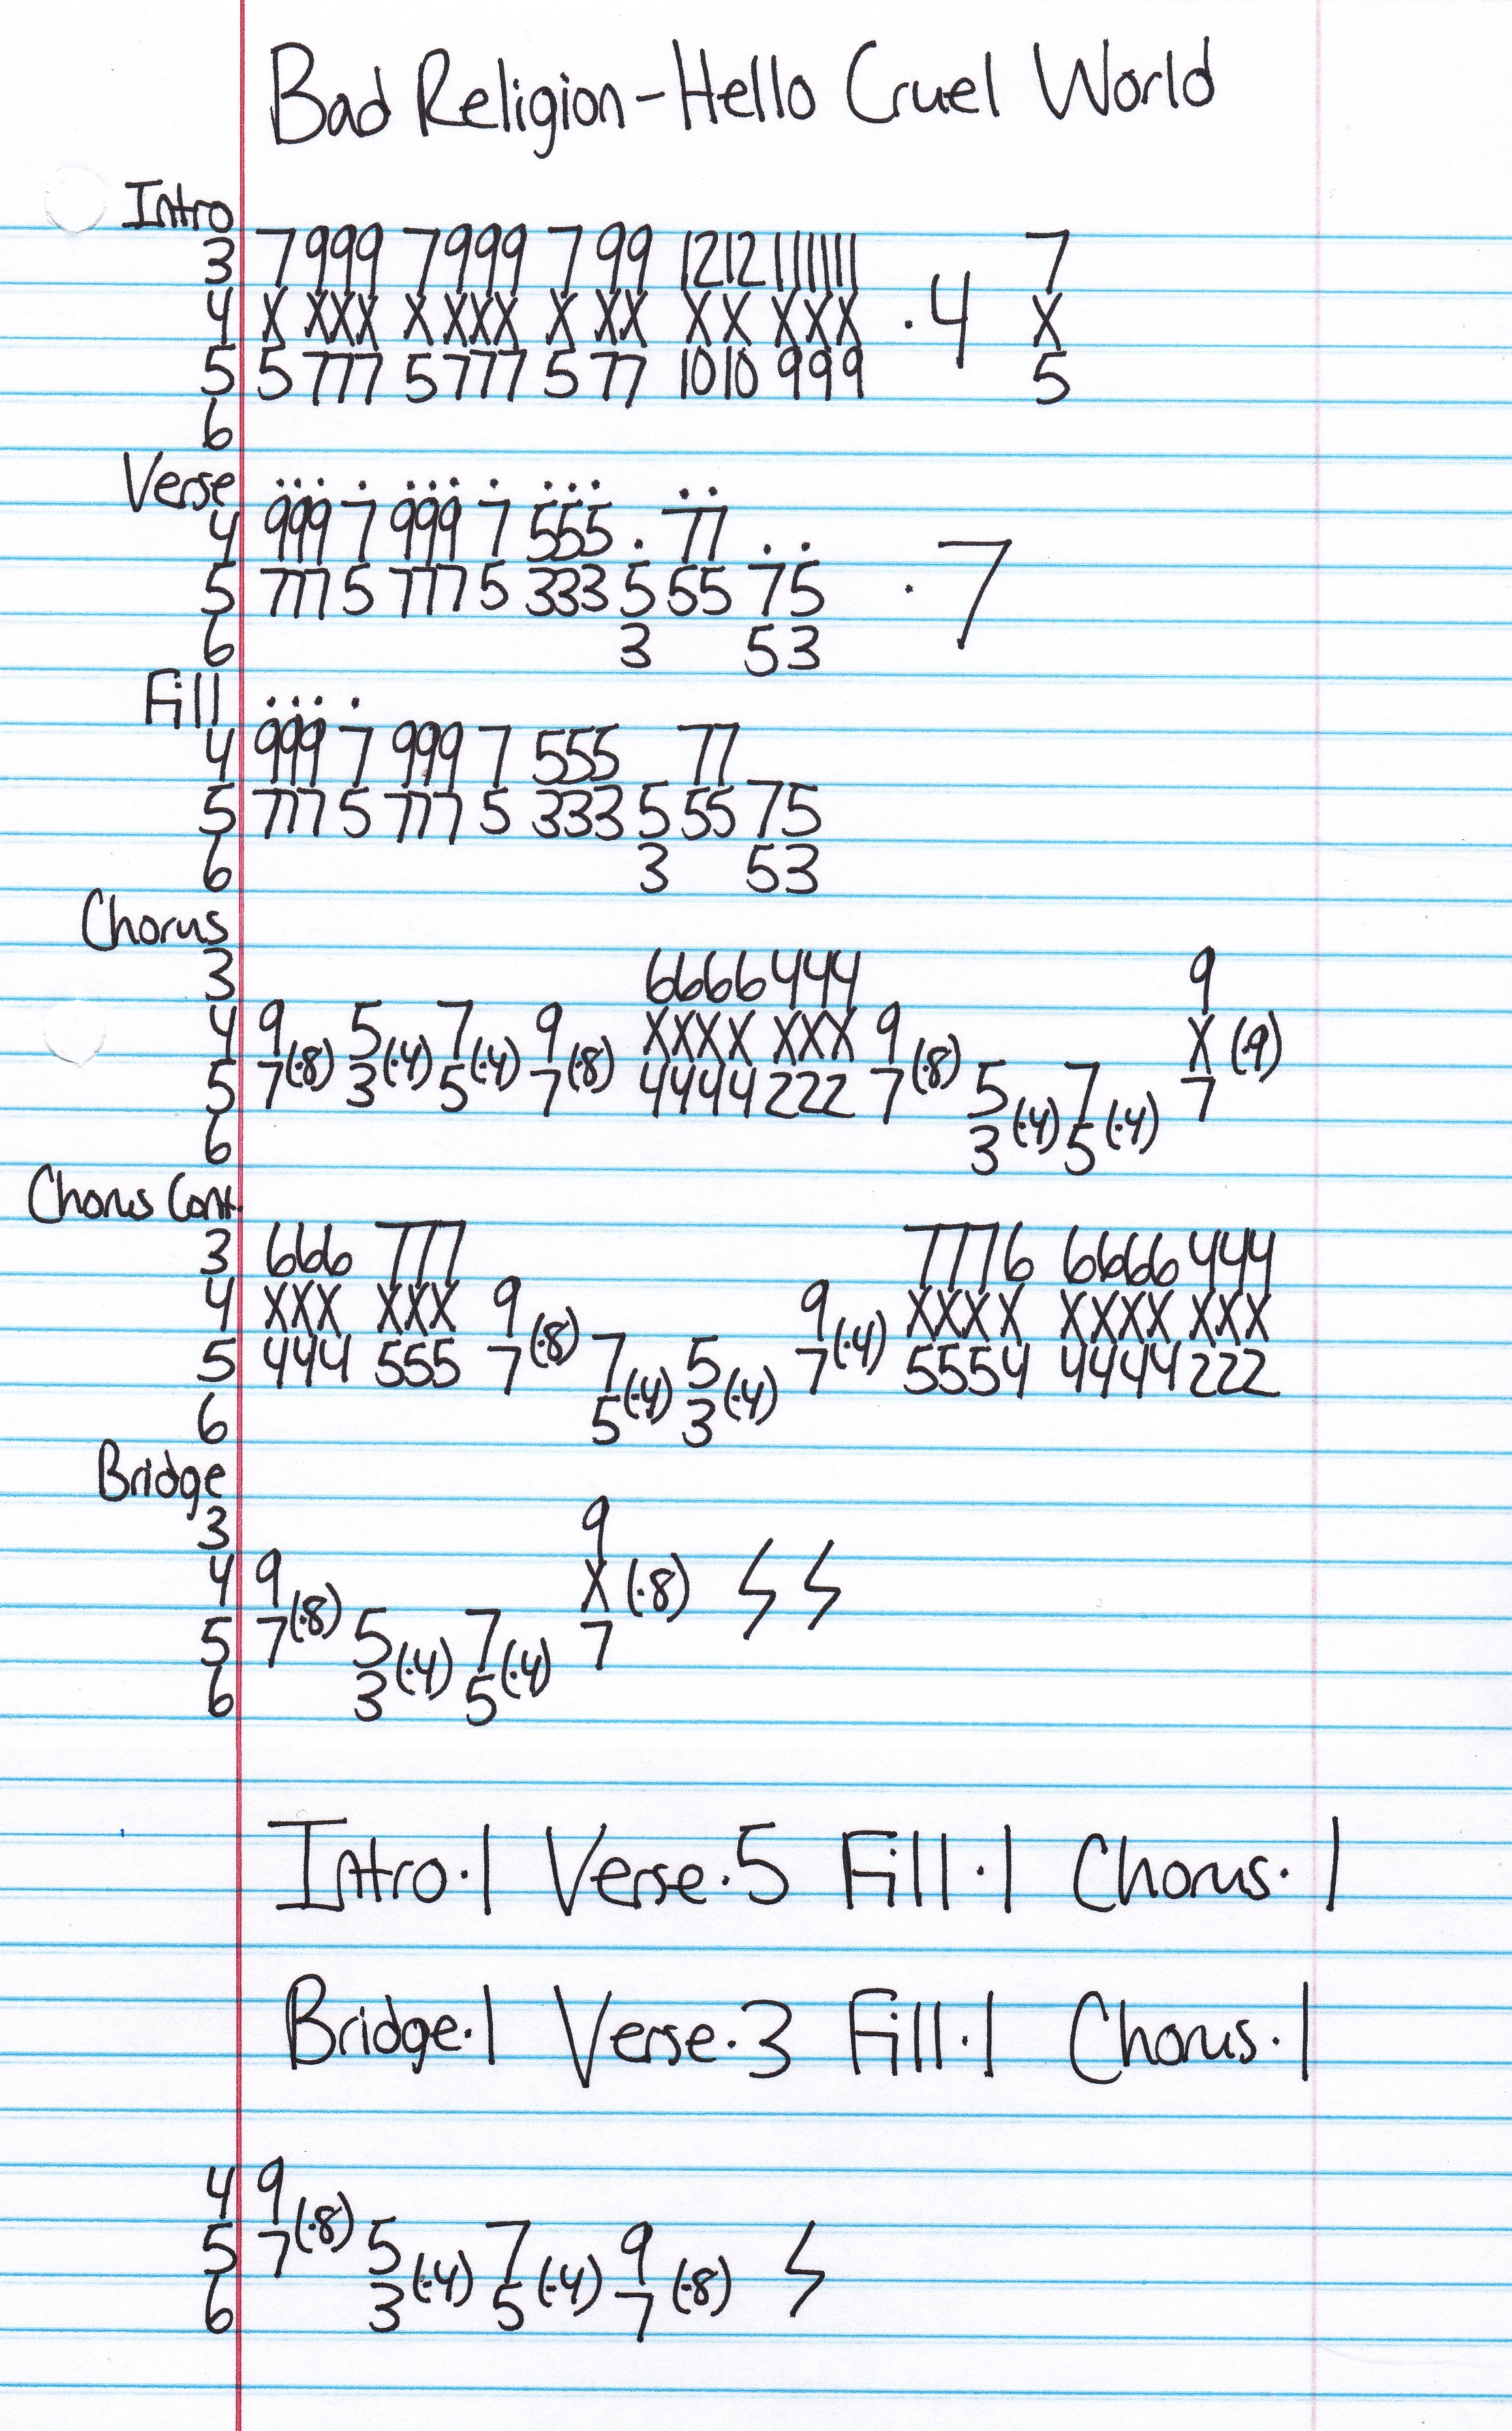 Bad Religion-Hello Cruel World
Intro
3 7 999 7 999 7 99 12 12 11 11 11 7
4 X XXX X XXX X XX X X XXX .4 X
5 5 777 5 777 5 77 10 10 999 5
6
Verse
4 999 7 999 7 555 . 77 . .
5 777 5 777 5 333 5 55 75 .7
6 3 53
Fill
4 999 7 999 7 555 77
5 777 5 777 5 333 5 55 75
6 3 53
Chorus
3 6666 444 9
4 9 5 7 9 XXXX XXX 9 X (.9)
5 7(.8) 3(.4) 5(.4) 7(.8) 4444 222 7(.8) 5 7 7
6 3(.4) 5(.4)
Chorus Cont.
3 666 777 7776 6666 444
4 XXX XXX 9 9 XXXX XXXX XXX
5 444 555 7(.8) 7 5 7(.4) 5554 4444 222
6 5(.4) 3(.4)
Bridge
3 9
4 9 X (.8)
5 7(.8) 5 7 7
6 3(.4) 5(.4)
Intro.1 Verse.5 Fill.1 Chorus.1
Bridge.1 Verse.3 Fill.1 Chorus.1
4 9
5 7(.8) 5 7 9
6 3(.4) 5(.4) 7(.8)